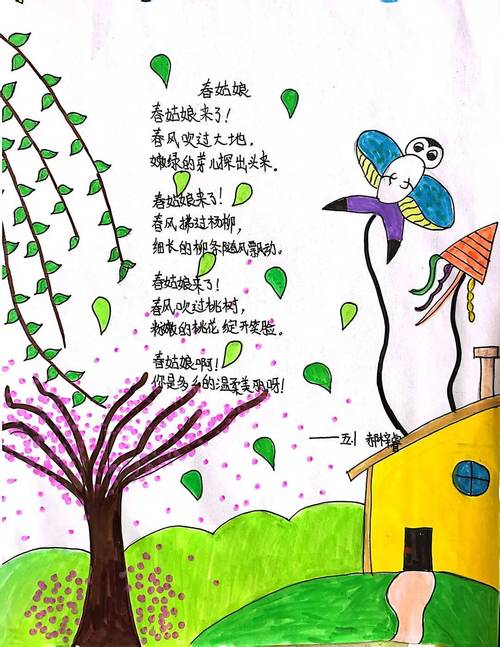 春姑娘
春姑娘来了！
春风吹过大地，
嫩绿的芽儿探出头来。
春姑娘来了！
春风拂过杨柳，
细长的柳条随风飘动。
春姑娘来了！
春风吹过桃树，
粉嫩的桃花绽开笑脸。
春姑娘啊！
你是多么的温柔美丽呀！
——五.1 郝梓睿